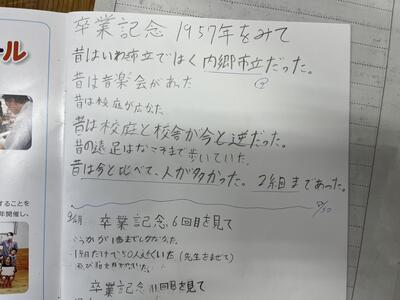 卒業記念 1957年をみて
昔はいわ市立ではく内郷市立だった。
昔は音楽会があった
昔は校庭が広かた
昔は校庭と校舎が今と逆だった。
昔の遠足はなこそまで歩いていた。
昔は今と比べて、人が多かった。2組まであった。
卒業記念6回目を見て
1組だけで50人近くいた(先生をまぜて)
卒業記念11回目を見て
ール
することを
年開催し、